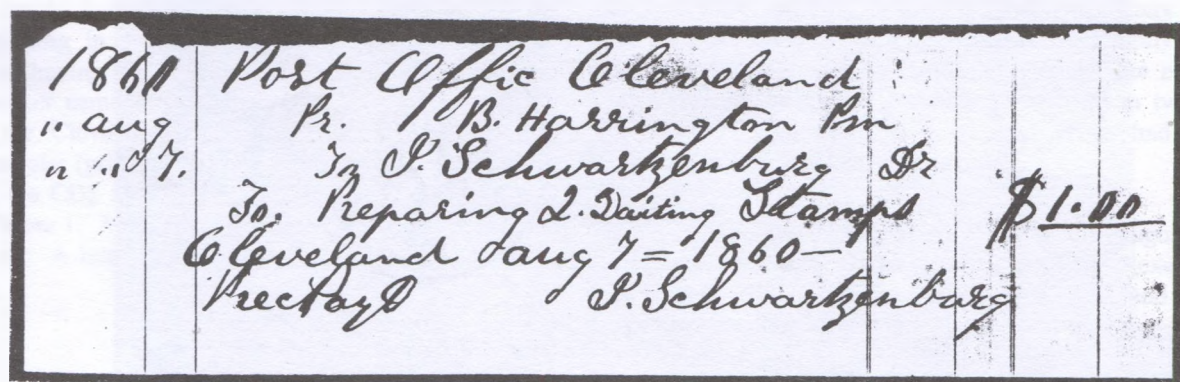 1860 Post Offic Cleveland
" aug Pr. B. Harrington Pm
" " 7. To P. Schwartzenburg Dr
To. Repairing 2. Daiting Stamps $1.00
Cleveland aug 7 = 1860 —
P. Schwartzenburg